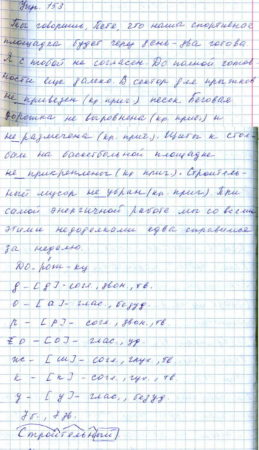 Упр. 153
Ты говоришь, Петя, что наша спортивная
площадка будет через день-два готова
Я с тобой не согласен. До полной готов
ности еще далеко. В сектор для прыжков
не привезен (кр. прич.) песок. Беговая
дорожка не выровнена (кр. прич.) и
не размечена (кр. прич.). Щиты к стол-
бам на баскетбольной площадке
не прикреплены (кр. прич.). Строитель-
ный мусор не убран (кр. прич.). При
самой энергичной работе мы со всеми
этими недоделками едва справимся
за неделю.
До-рож-ку
д - [д] - согл., звон., тв.
о - [а] - глас., безуд.
р - [р] - согл., звон., тв.
о - [о] - глас., уд.
ж - [ш] - согл., глух., тв.
к - [к] - согл., глух., тв.
у - [у] - глас., безуд.
7 б., 7 зв.
Строительный